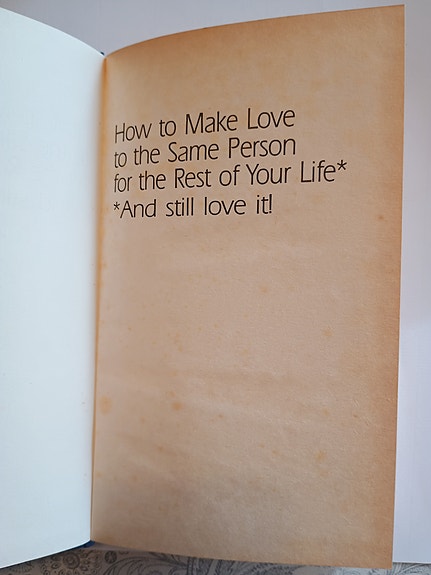 How to Make Love
to the Same Person
for the Rest of Your Life*
*And still love it!